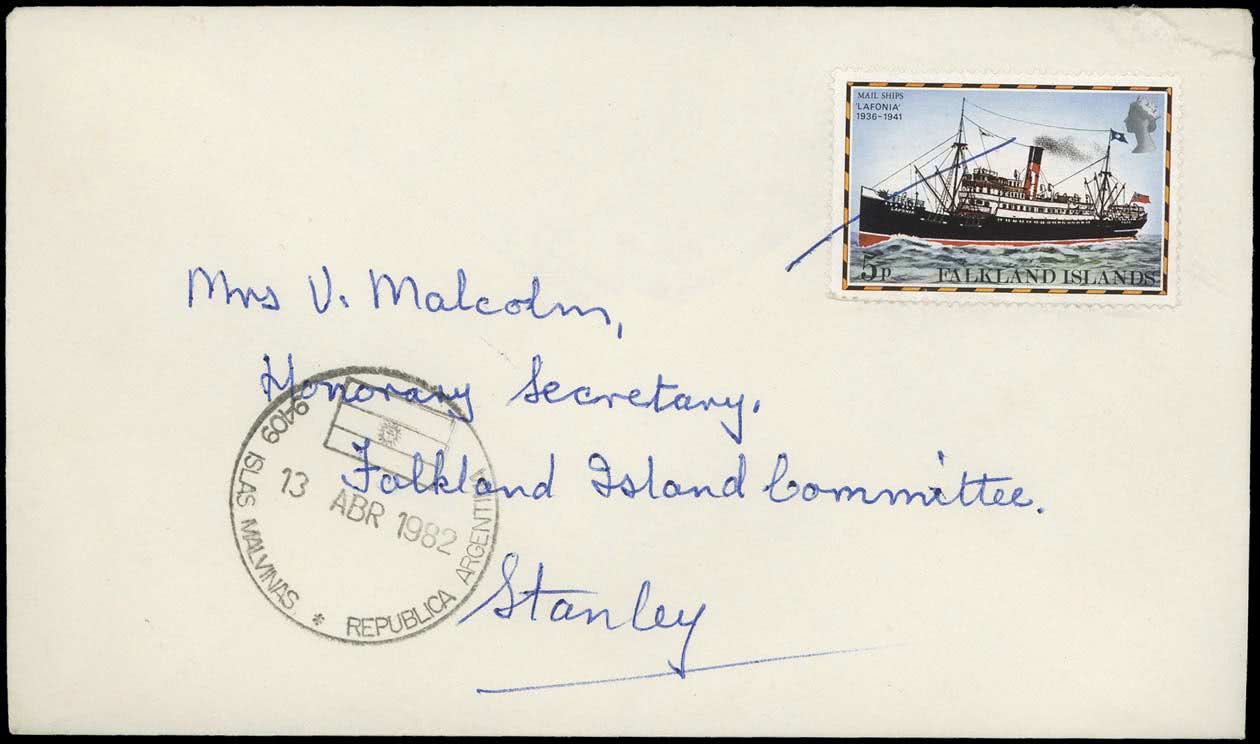 MAIL SHIPS
'LAFONIA'
1936-1941
5p FALKLAND ISLANDS
Mrs V. Malcolm,
Honorary Secretary.
Falkland Island Committee.
Stanley
9409 ISLAS MALVINAS * REPUBLICA ARGENTINA
13 ABR 1982